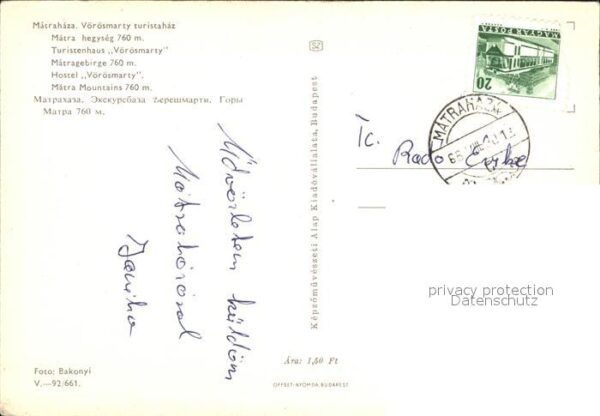 Mátraháza. Vörösmarty turistaház
Mátra hegység 760 m.
Turistenhaus „Vörösmarty”
Mátragebirge 760 m.
Hostel „Vörösmarty”.
Mátra Mountains 760 m.
Матрахаза. Экскурсбаза Верешмарти. Горы
Матра 760 м.
Üdvözletem küldöm
Mátraházáról
Foto: Bakonyi
V.—92/661.
Képzőművészeti Alap Kiadóvállalata, Budapest
Ára: 1,50 Ft
OFFSET-NYOMDA, BUDAPEST
MAGYAR POSTA
20
MÁTRAHÁZA
Ic.
Radó
privacy protection
Datenschutz